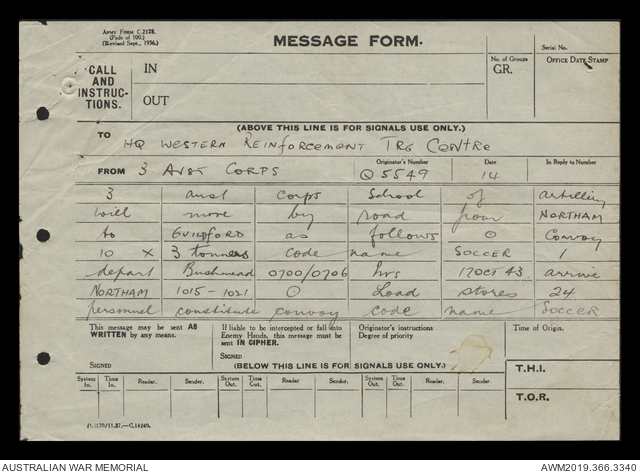 ARMY FORM C.2128.
(Pads of 100.)
(Revised Sept., 1936.)
MESSAGE FORM.
Serial No.
CALL AND INSTRUC-TIONS.
IN
OUT
No. of Groups
GR.
OFFICE DATE STAMP
(ABOVE THIS LINE IS FOR SIGNALS USE ONLY.)
TO HQ WESTERN REINFORCEMENT TRG CENTRE
FROM 3 AUST CORPS
Originator's Number Q5549
Date 14
In Reply to Number
3 aust corps School of artillery
will move by road from NORTHAM
to GUILDFORD as follows ⊙ Convoy
10 x 3 tonners code name SOCCER 1
depart Bushmead 0700/0706 hrs 17 OCT 43 arrive
NORTHAM 1015 - 1021 ⊙ Load stores 24
personnel constitute convoy code name SOCCER
This message may be sent AS WRITTEN by any means.
SIGNED
If liable to be intercepted or fall into Enemy Hands, this message must be sent IN CIPHER.
SIGNED
Originator's instructions
Degree of priority
Time of Origin.
(BELOW THIS LINE IS FOR SIGNALS USE ONLY.)
T.H.I.
T.O.R.
System In. Time In. Reader. Sender. System Out. Time Out. Reader. Sender. System Out. Time Out. Reader. Sender.
AUSTRALIAN WAR MEMORIAL
AWM2019.366.3340